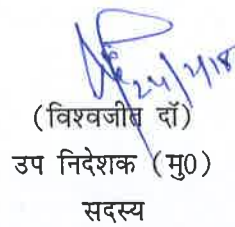 24/4/18
(विश्वजीत दॉ)
उप निदेशक (मु0)
सदस्य